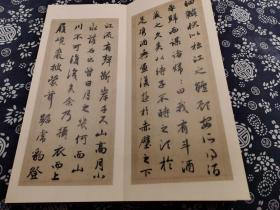 細鱗狀似松江之鱸顧安所得酒
乎歸而謀諸婦婦曰我有斗酒
藏之久矣以待子不時之須於
是攜酒與魚復遊於赤壁之下
江流有聲斷岸千尺山高月小
水落石出曾日月之幾何而江
山不可復識矣余乃攝衣而上
履巉巖披蒙茸踞虎豹登